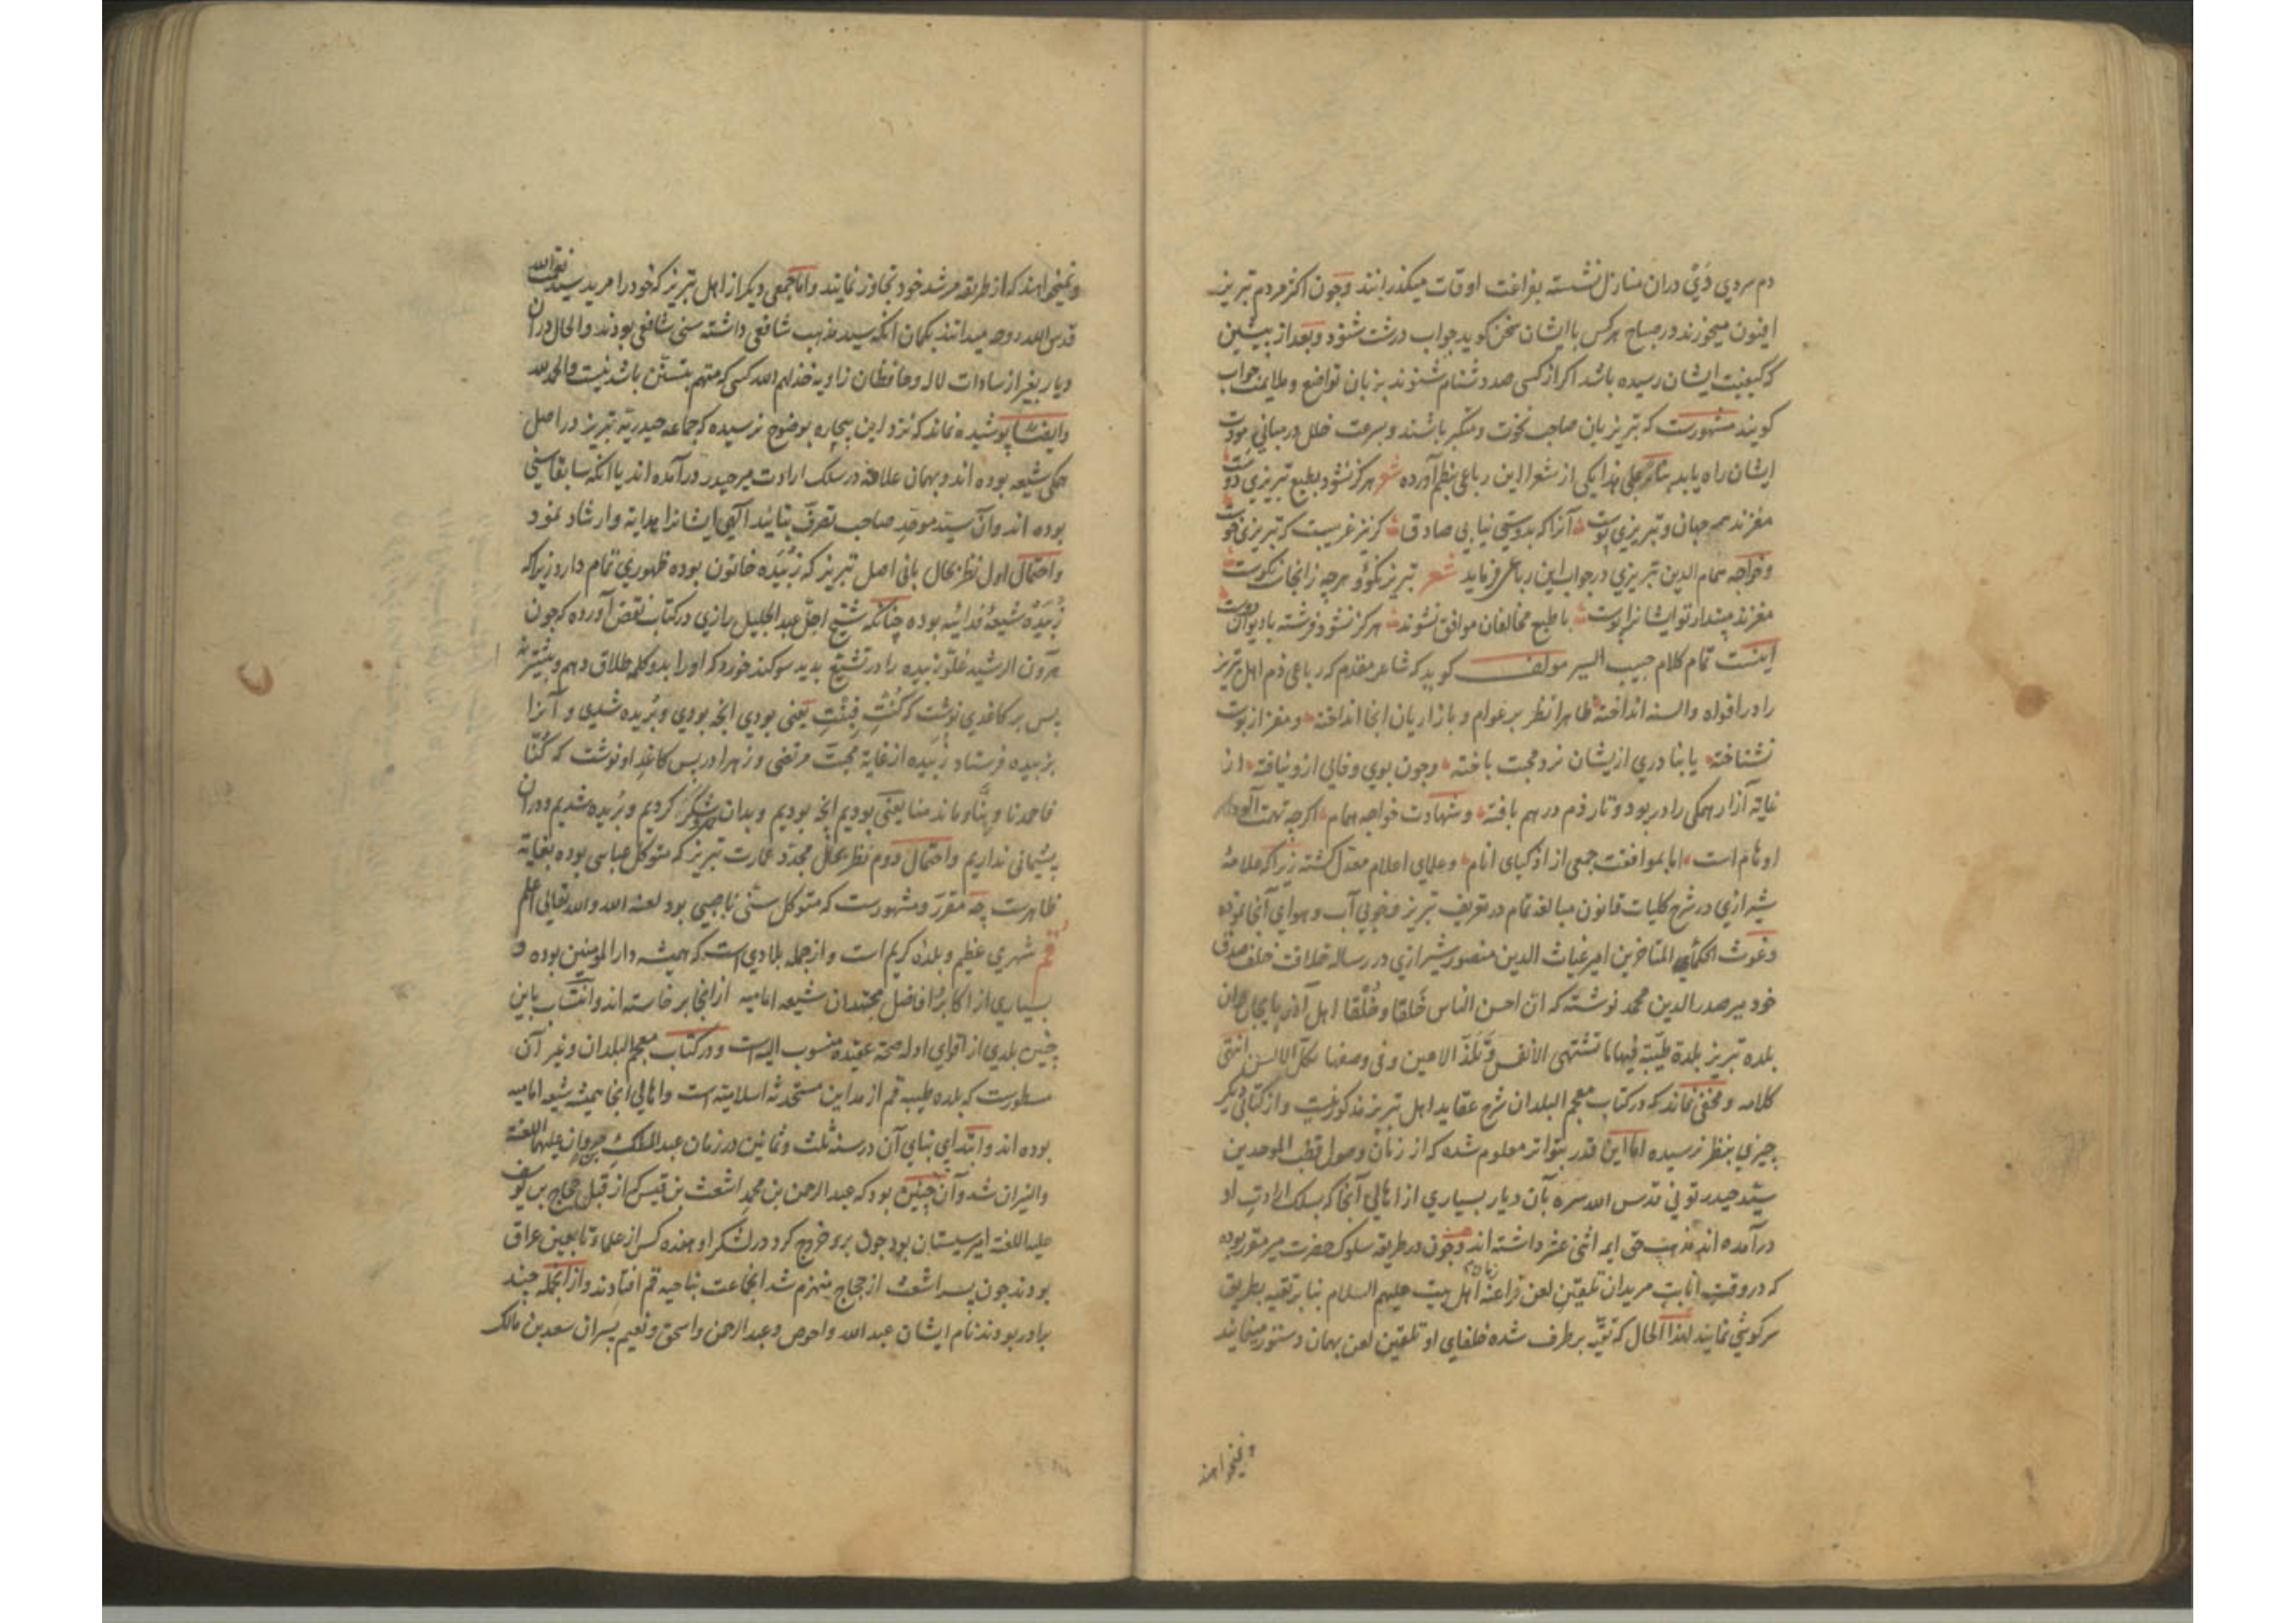 دم سردی دَیْ دران منازل نشسته بفراغت اوقات میکذرانند و چون اکثر مردم تبریز
افیون میخورند در صباح هرکس با ایشان سخن کوید جواب درشت شنود و بعد از پیشین
که کیفیت ایشان رسیده باشد اکر از کسی صد دشنام شنوند بزبان تواضع و ملایمت جواب
کویند مشهورست که تبریزیان صاحب نخوت و متکبر باشند و بسرعت خلل در مبانی مودت
ایشان راه یابد بنابر علی هذا یکی از شعرا این رباعی بنظم آورده شعر هرکز نشود بطبع تبریزی دوست
مغزند همه جهان و تبریزی پوست آنرا که بدوستی نیابی صادق کر نیز غریبست که تبریزی خوست
و خواجه همام الدین تبریزی در جواب این رباعی فرماید شعر تبریز نکو و هرچه زانجاست نکوست
مغزند مپندار تو ایشانرا پوست با طبع مخالفان موافق نشوند هرکز نشود فرشته با دیوان دوست
اینست تمام کلام حبیب السیر مولف کوید که شاعر مقدم که رباعی ذم اهل تبریز
را در افواه والسنه انداخته ظاهرا نظر بر عوام و بازاریان انجا انداخته و مغز از پوست
نشناخته یا بنادری ازیشان نرد محبت باخته و چون بوی وفایی ازو نیافته از
غایة آزار همکی را در پود و تار ذم درهم بافته و شهادت خواجه همام اکرچه تهمت آلود
اوهام است اما بموافقت جمعی از اذکیای انام و علمای اعلام معدل کشته زیرا که علامهٔ
شیرازی در شرح کلیات قانون مبالغه تمام در تعریف تبریز و خوبی آب و هوای آنجا نموده
و غوث الحکماء المتاخرین امیر غیاث الدین منصور شیرازی در رساله خلافت خلف صدق
خود میر صدرالدین محمد نوشته که ان احسن الناس خَلقا وخُلقا اهل آذربایجان وان
بلده تبریز بلدة طیّبة فیها ما تشتهی الانفس وتَلَذّ الاعین وفی وصفها تکلّ الالسن انتهی
کلامه و مخفی نماند که در کتاب معجم البلدان شرح عقاید اهل تبریز مذکور نیست و از کتابی دیکر
چیزی بنظر نرسیده اما این قدر بتواتر معلوم شده که از زمان وصول قطب الموحدین
سیّد حیدر تونی قدس الله سره بآن دیار بسیاری از اهالی آنجا که بسلک ارادت او
درآمده اند مذهب حق ایمه اثنی عشر داشته اند و چون در طریقه سلوک حضرت میر مقرر بوده
که در وقت انابت مریدان تلقین لعن فراعنهٔ زمان اهل بیت علیهم السلام بنابر تقیه بطریق
سرکوشی نمایند لهذا الحال که تقیه برطرف شده خلفای او تلقین لعن بهمان دستور مینمایند
و نمیخواهند
و نمیخواهند که از طریقه مرشد خود تجاوز نمایند و اما جمعی دیکر از اهل تبریز که خود را مرید سید نعمت الله
قدس الله روحه میدانند بکمان آنکه سید مذهب شافعی داشته سنی شافعی بودند والحال دران
دیار بغیر از سادات لاله و حافظان زاویه خذلهم الله کسی که متهم بتسنّن باشد نیست والحمد لله
وایضا پوشیده نماند که نزد این بیچاره بوضوح نرسیده که جماعه حیدریهٔ تبریز در اصل
همکی شیعه بوده اند و بهمان علاقه در سلک ارادت میر حیدر درآمده اند یا آنکه سابقا سنی
بوده اند و آن سیّد موحد صاحب تصرف بتائید آلهی ایشانرا هدایة و ارشاد نمود
و احتمال اول نظر بحال بانی اصل تبریز که زُبَیده خاتون بوده ظهوری تمام دارد زیرا که
زُبَیْده شیعهٔ فدائیه بوده چنانکه شیخ اجلّ عبدالجلیل رازی در کتاب نقض آورده که چون
هرون الرشید غلوّ زبیده را در تشیّع بدید سوکند خورد که او را بدو کلمه طلاق دهم و بیشتر نه
پس بر کاغذی نوشت که کُنْتِ فَبِنْتِ یعنی بودی انچه بودی و بُریده شدی و آنرا
بزبیده فرستاد زبیده از غایة محبت مرتضی و زهرا در پس کاغذ او نوشت که کُنّا
فاحمدنا وبِنّا وما ندمنا یعنی بودیم انچه بودیم و بدان شکر کردیم و بُریده شدیم و دران
پشیمانی نداریم و احتمال دوم نظر بحال مجدّد عمارت تبریز که متوکل عباسی بوده بغایة
ظاهرست چه مقرر و مشهورست که متوکل سنّی ناصبی بود لعنه الله والله تعالی اعلم
قم شهری عظیم و بلدهٔ کریم است و از جمله بلادی است که همیشه دارالمومنین بوده و
بسیاری از اکابر و افاضل مجتهدان شیعه امامیه ازانجا برخاسته اند و انتساب باین
چنین بلدی از اقوای ادلهٔ صحة عقیده منسوب الیه است و در کتاب معجم البلدان و غیر آن
مسطورست که بلده طیبه قم از مداین مستحدثه اسلامیّه است و اهالی انجا همیشه شیعه امامیه
بوده اند و ابتدای بنای آن در سنه ثلث وثمانین در زمان عبدالملک مروان علیهما اللعنة
والنیران شد و آن چنین بود که عبدالرحمن بن محمد اشعث بن قیس که از قبل حجاج بن یوسف
علیه اللعنة امیر سیستان بود چون برو خروج کرد در لشکر او هفده کس از علماء تابعین عراق
بودند چون پسر اشعث از حجاج منهزم شد انجماعت بناحیه قم افتادند و از انجمله چند
برادر بودند نام ایشان عبدالله و احوص و عبدالرحمن و اسحق و نعیم پسران سعد بن مالک